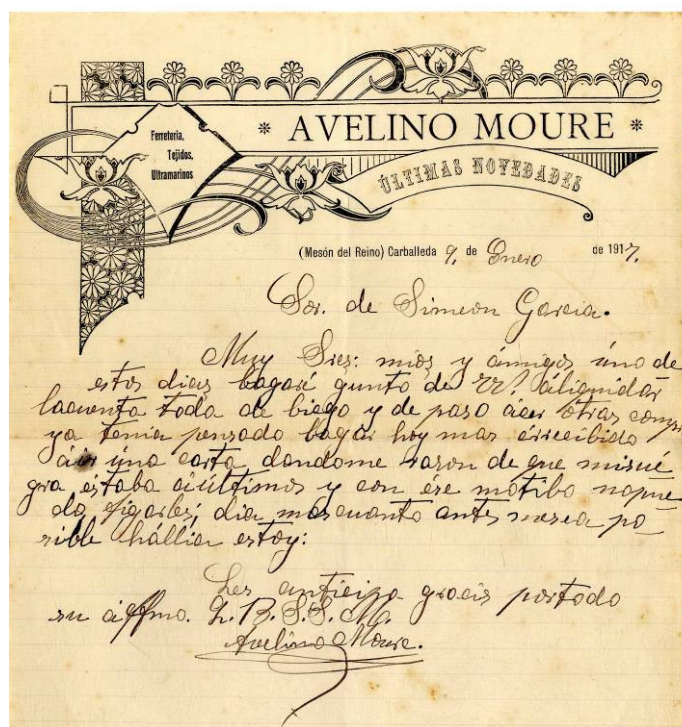 Ferretería,
Tejidos,
Ultramarinos
* AVELINO MOURE *
ÚLTIMAS NOVEDADES
(Mesón del Reino) Carballeda 9, de Enero de 1917.
Sor. de Simeon Garcia.
Muy Sres: mios y ámigos úno de
estos dias bagaré gunto de VV. áliquidár
lacuenta toda de biego y de paso ácer ótras comps
ya tenia pensado bagár hoy mas érrecibido
áir úna carta, dandome razon de que misué
gra éstaba áúltimos y con ése mótibo nopue
do figarles; dia mas cuanto antes mesea po
sible hállia estoy:
Les anticipa gracis portodo
su áffmo. q. B. S. S. M.
Avelino Moure.